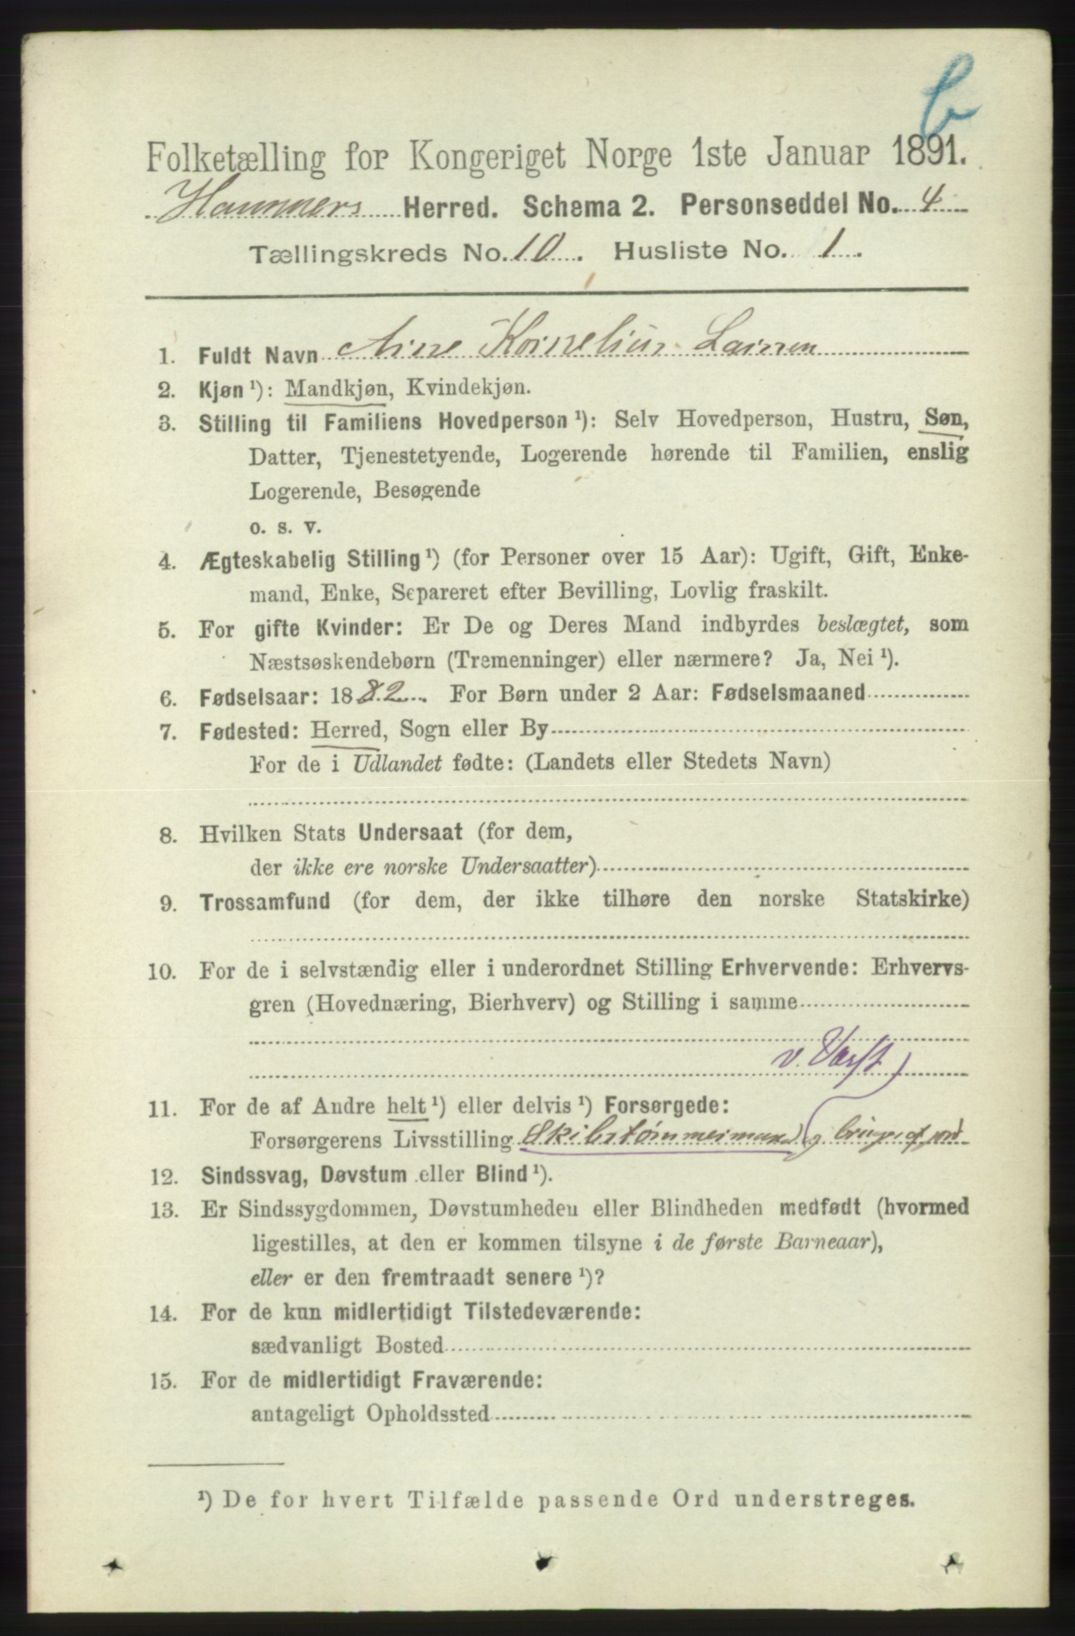 b
Folketælling for Kongeriget Norge 1ste Januar 1891.
Hammers Herred. Schema 2. Personseddel No. 4
Tællingskreds No. 10. Husliste No. 1.
1. Fuldt Navn Arne Kornelius Larsen
2. Kjøn ¹): Mandkjøn, Kvindekjøn.
3. Stilling til Familiens Hovedperson ¹): Selv Hovedperson, Hustru, Søn,
Datter, Tjenestetyende, Logerende hørende til Familien, enslig
Logerende, Besøgende
o. s. v.
4. Ægteskabelig Stilling ¹) (for Personer over 15 Aar): Ugift, Gift, Enke-
mand, Enke, Separeret efter Bevilling, Lovlig fraskilt.
5. For gifte Kvinder: Er De og Deres Mand indbyrdes beslægtet, som
Næstsøskendebørn (Tremenninger) eller nærmere? Ja, Nei ¹).
6. Fødselsaar: 1882. For Børn under 2 Aar: Fødselsmaaned
7. Fødested: Herred, Sogn eller By
For de i Udlandet fødte: (Landets eller Stedets Navn)
8. Hvilken Stats Undersaat (for dem,
der ikke ere norske Undersaatter)
9. Trossamfund (for dem, der ikke tilhøre den norske Statskirke)
10. For de i selvstændig eller i underordnet Stilling Erhvervende: Erhvervs-
gren (Hovednæring, Bierhverv) og Stilling i samme
v. Værft
11. For de af Andre helt ¹) eller delvis ¹) Forsørgede:
Forsørgerens Livsstilling Skibstømmermand, bruger af jord
12. Sindssvag, Døvstum eller Blind ¹).
13. Er Sindssygdommen, Døvstumheden eller Blindheden medfødt (hvormed
ligestilles, at den er kommen tilsyne i de første Barneaar),
eller er den fremtraadt senere ¹)?
14. For de kun midlertidigt Tilstedeværende:
sædvanligt Bosted
15. For de midlertidigt Fraværende:
antageligt Opholdssted
¹) De for hvert Tilfælde passende Ord understreges.